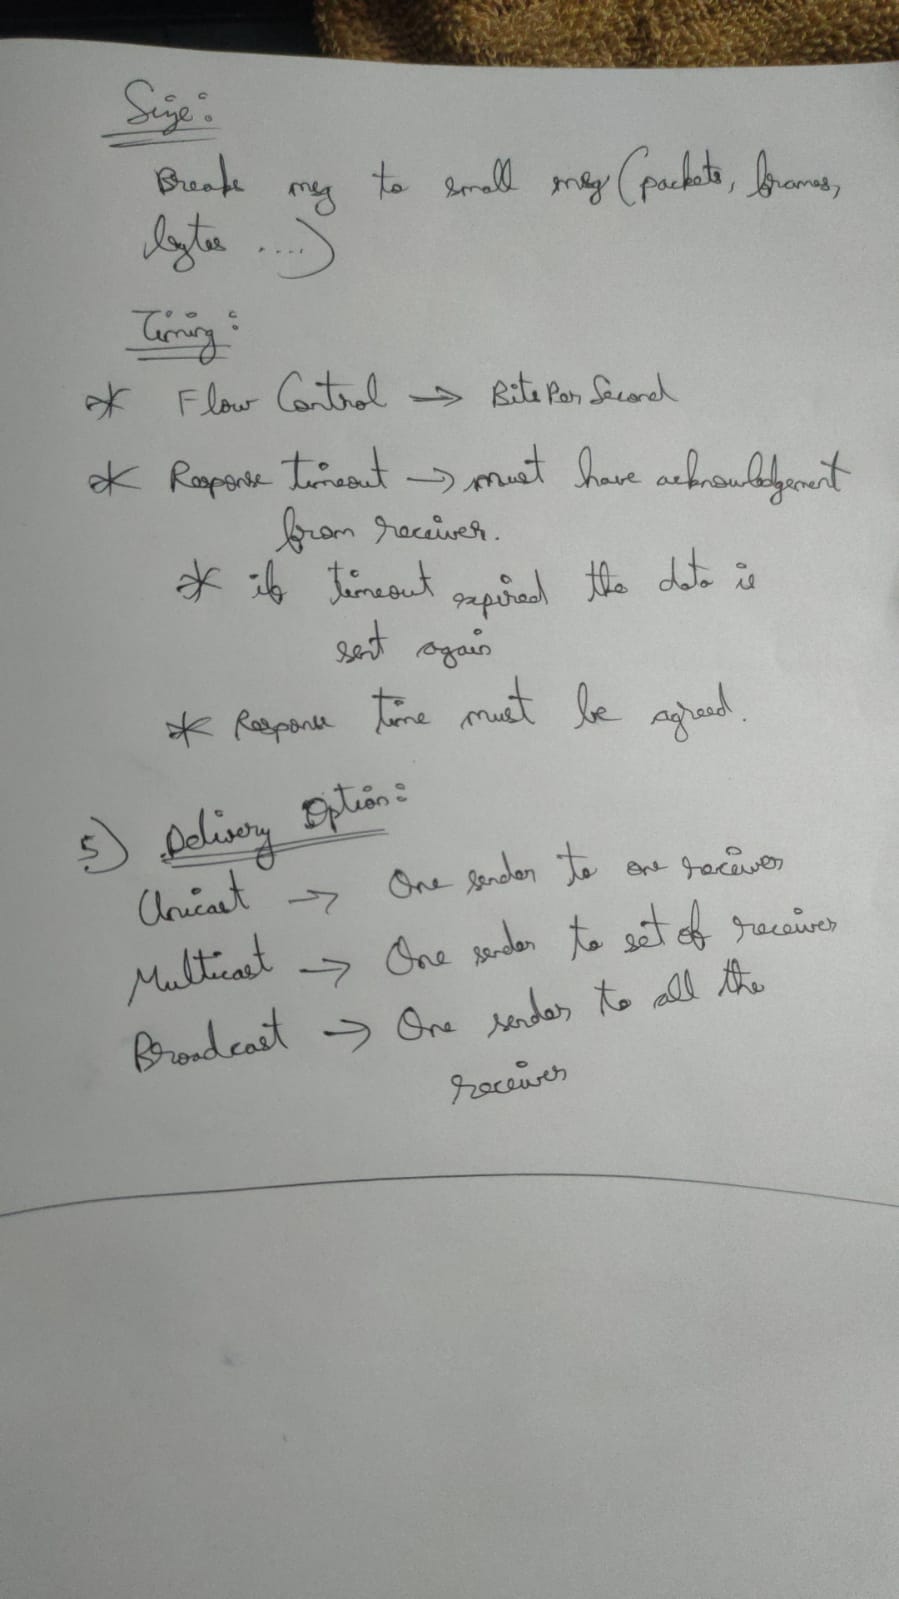 Size:
Break msg to small msg (packets, frames,
bytes ....)
Timing:
* Flow Control → Bits Per Second
* Response timeout → must have acknowledgement
from receiver.
* if timeout expired the data is
sent again
* Response time must be agreed.
5) Delivery Option:
Unicast → One sender to one receiver
Multicast → One sender to set of receiver
Broadcast → One sender to all the
receiver